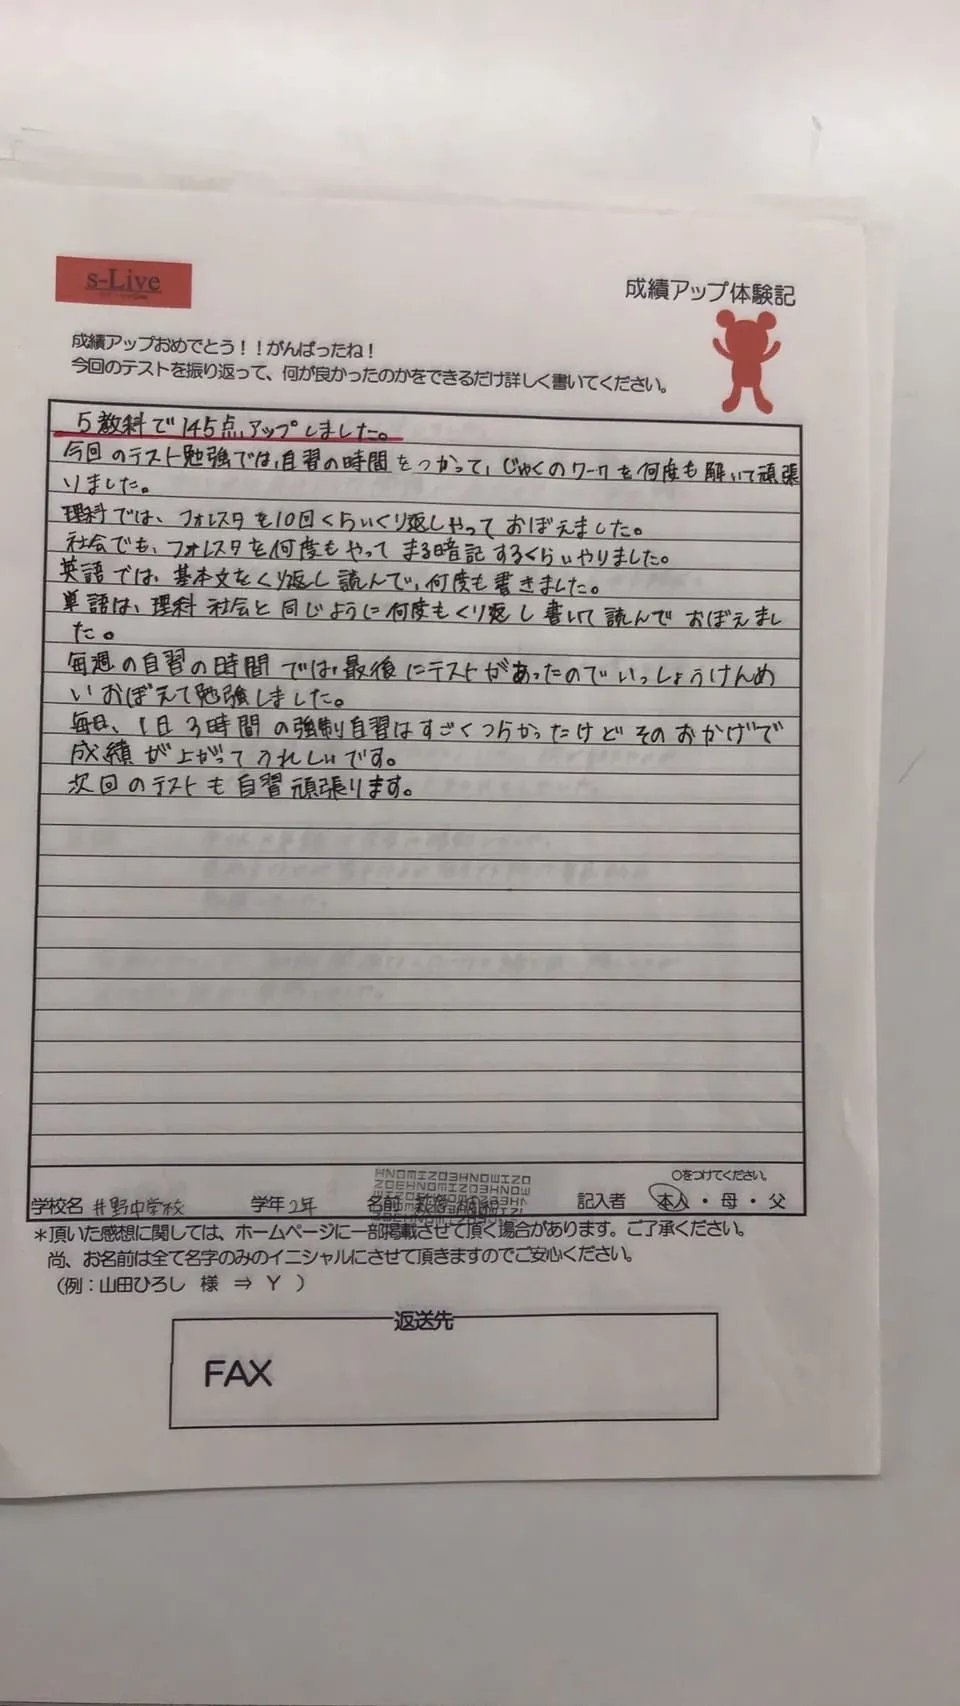 s-Live
成績アップ体験記
成績アップおめでとう！！がんばったね！
今回のテストを振り返って、何が良かったのかをできるだけ詳しく書いてください。
5教科で145点アップしました。
今回のテスト勉強では、自習の時間をつかって、じゅくのワークを何度も解いて頑張
りました。
理科では、フォレスタを10回くらいくり返しやっておぼえました。
社会でも、フォレスタを何度もやってまる暗記するくらいやりました。
英語では、基本文をくり返し読んで、何度も書きました。
単語は、理科社会と同じように何度もくり返し書いて読んでおぼえまし
た。
毎週の自習の時間では、最後にテストがあったのでいっしょうけんめ
いおぼえて勉強しました。
毎日、1日3時間の強制自習はすごくつらかったけどそのおかげで
成績が上がってうれしいです。
次回のテストも自習頑張ります。
○をつけてください。
学校名 井野中学校 学年 2年 名前 記入者 本人・母・父
＊頂いた感想に関しては、ホームページに一部掲載させて頂く場合があります。ご了承ください。
尚、お名前は全て名字のみのイニシャルにさせて頂きますのでご安心ください。
（例：山田ひろし 様 ⇒ Y ）
返送先
FAX